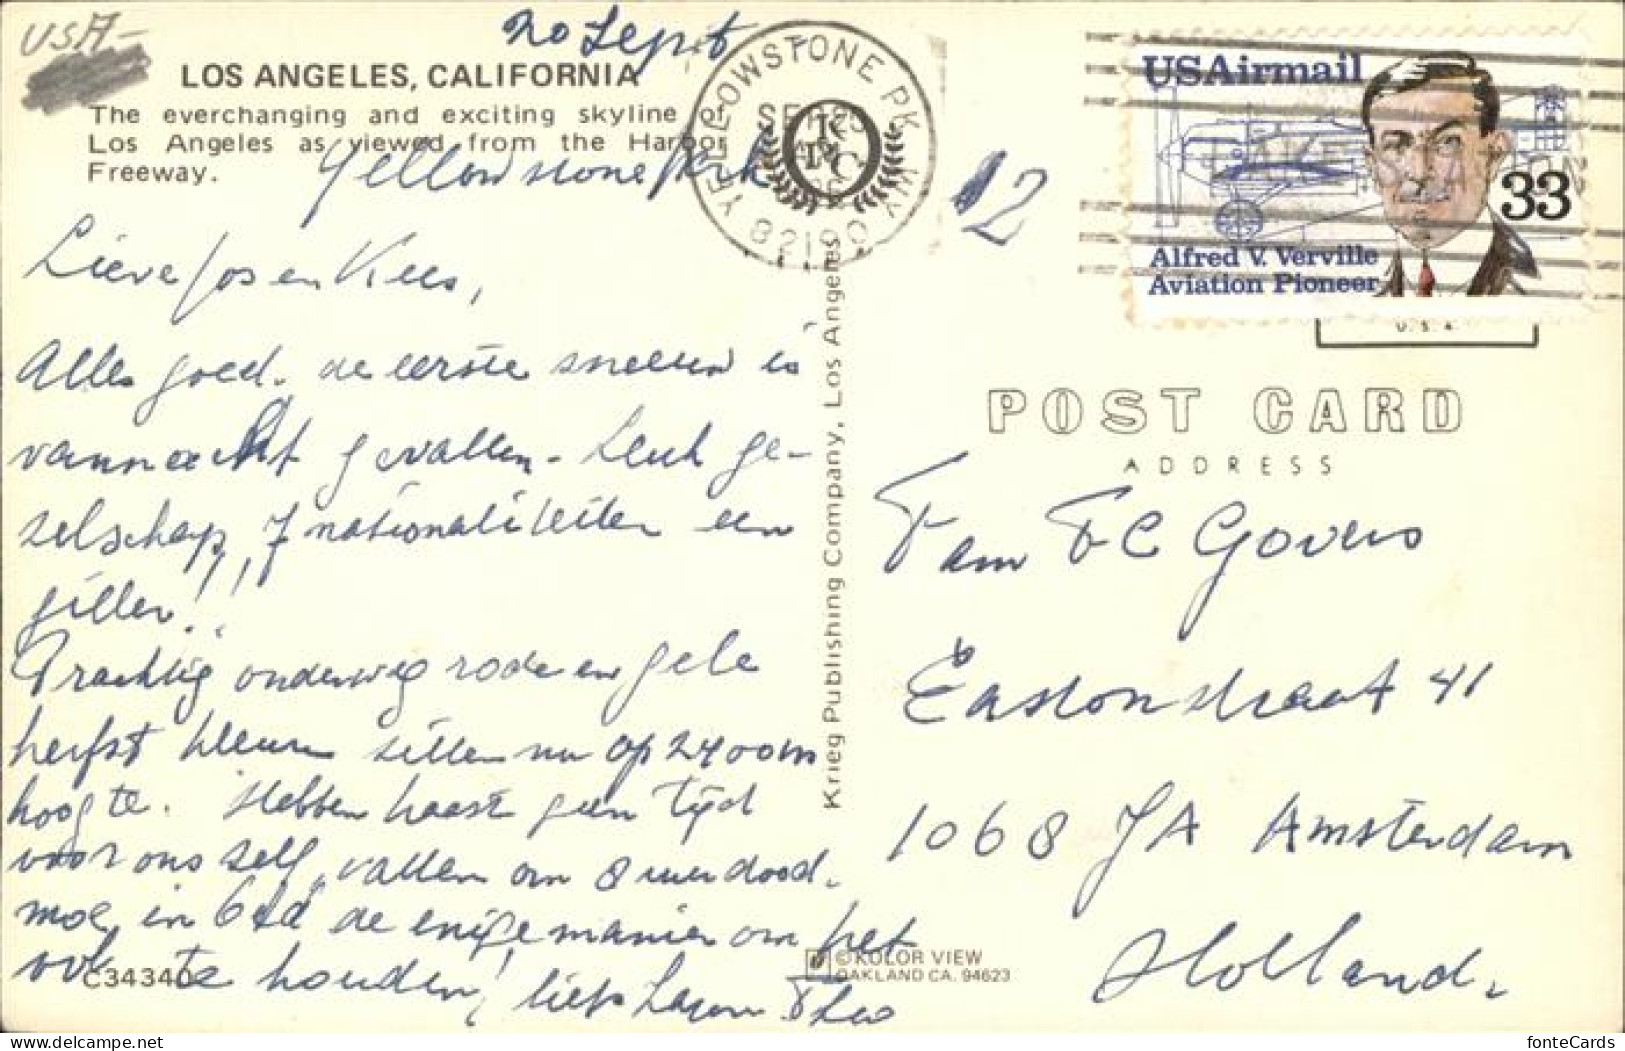 USA-
20 Sept
LOS ANGELES, CALIFORNIA
The everchanging and exciting skyline of
Los Angeles as viewed from the Harbor
Freeway.
Yellowstone Park
YELLOWSTONE PK WY
82190
12
USAirmail
33
Alfred V. Verville
Aviation Pioneer
U.S.A.
Lieve Jos en Kees,
Alles goed. de eerste sneeuw is
vannacht gevallen. Leuk ge-
zelschap, 7 nationaliteiten een
giller!!!
Prachtig onderweg rode en gele
herfst kleuren zitten nu op 2400 m
hoogte. Hebben haast geen tijd
voor ons zelf, vallen om 8 uur dood.
moe in bed de enige manier om het
ook te houden! liefs Theo
C34340
Krieg Publishing Company, Los Angeles
© KOLOR VIEW
OAKLAND CA. 94623
POST CARD
ADDRESS
Fam FC Govers
Eastonstraat 41
1068 JA Amsterdam
Holland.
fonteCards